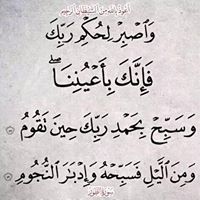 أعوذ بالله من الشيطان الرجيم
وَٱصۡبِرۡ لِحُكۡمِ رَبِّكَ
فَإِنَّكَ بِأَعۡيُنِنَاۖ
وَسَبِّحۡ بِحَمۡدِ رَبِّكَ حِينَ تَقُومُ
وَمِنَ ٱلَّيۡلِ فَسَبِّحۡهُ وَإِدۡبَٰرَ ٱلنُّجُومِ
سورة الطور